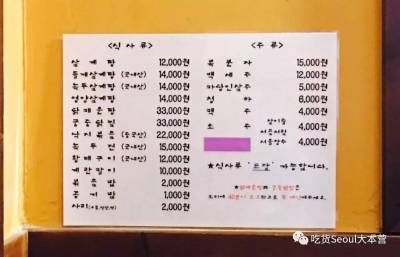 <식 사 류>
삼 계 탕 12,000원
들깨삼계탕 (국내산) 14,000원
녹두삼계탕 (국내산) 14,000원
영양삼계탕 14,000원
닭 매 운 탕 33,000원
궁 중 닭 찜 33,000원
낙 지 볶 음 (중국산) 22,000원
녹 두 전 (국내산) 15,000원
황 태 구 이 10,000원
계 란 말 이 10,000원
볶 음 밥 2,000원
공 기 밥 1,000원
사 리 2,000원
<주 류>
복 분 자 15,000원
백 세 주 12,000원
5,000원
청 하 6,000원
맥 주 4,000원
소 주 참이슬 처음처럼 4,000원
서울장수 4,000원
★식사류 '포장' 가능합니다.
吃货Seoul大本营